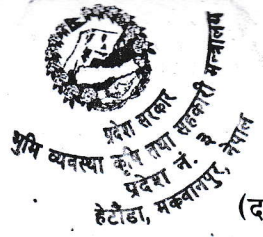 प्रदेश सरकार
भुमि व्यवस्था कृषि तथा सहकारी मन्त्रालय
प्रदेश नं. ३
हेटौंडा, मकवानपुर, नेपाल
(द